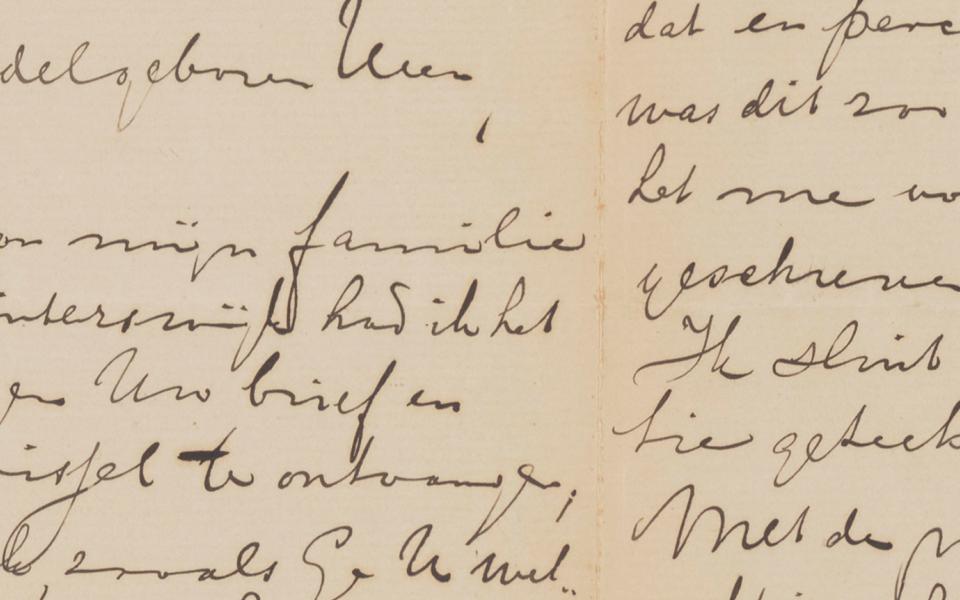 delgeboren Heer,
on mijn familie
nterswijk had ik het
en Uw brief en
issel te ontvangen,
k, zooals Ge U wel
dat en perc
was dit zoo
het me vo
geschreve
Ik sluit
tie geteek
Met de